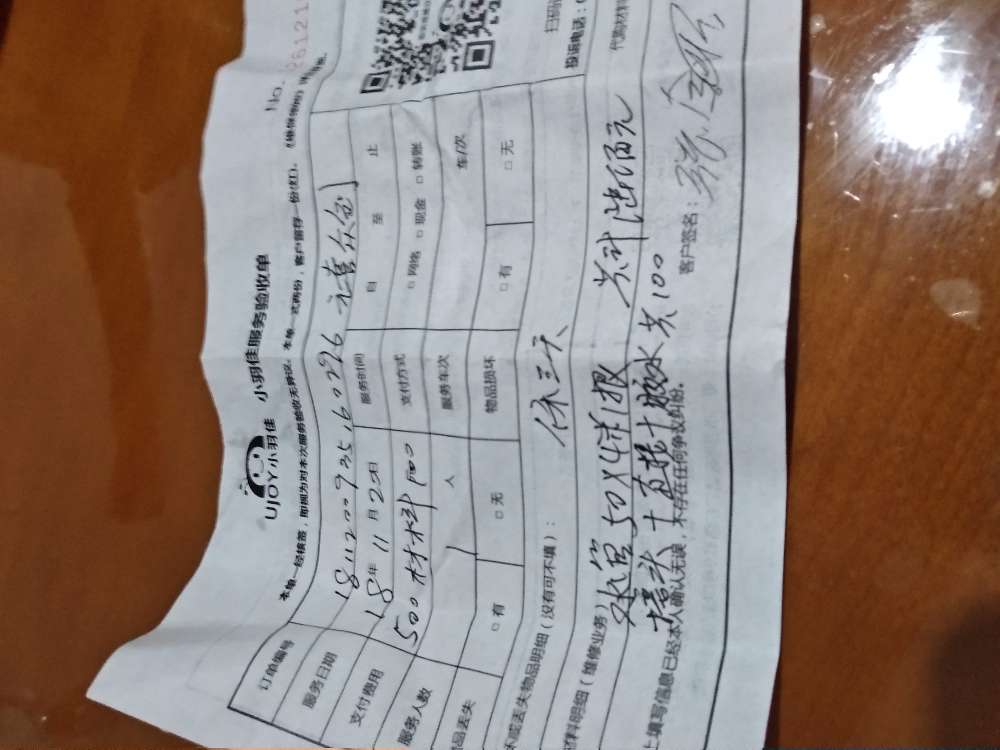 No. 261213
UJOY小羽佳 小羽佳服务验收单
本单一经核签，即视为对本次服务验收无异议。本单一式两份，客户留存一份(红)。
订单编号 1811200935160296
服务日期 18年11月20日 服务时间 自 至 止
支付费用 500材料100 支付方式 □网络 □现金 □转账
服务人数 1 人 服务车次 车/次
品丢失 □有 □无 物品损坏 □有 □无
坏或丢失物品明细（没有可不填）： 保三天
材料明细（维修业务） 水管50×4米1根 共计陆佰元
墙头+直接+胶水共100
上填写信息已经本人确认无误，不存在任何争议纠纷。 客户签名：
扫码
投诉电话：
代购材料